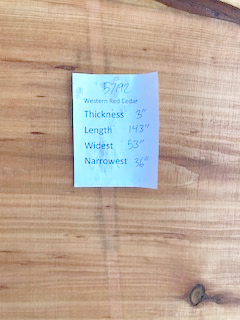 57192
Western Red Cedar
Thickness 3"
Length 143"
Widest 53"
Narrowest 36"